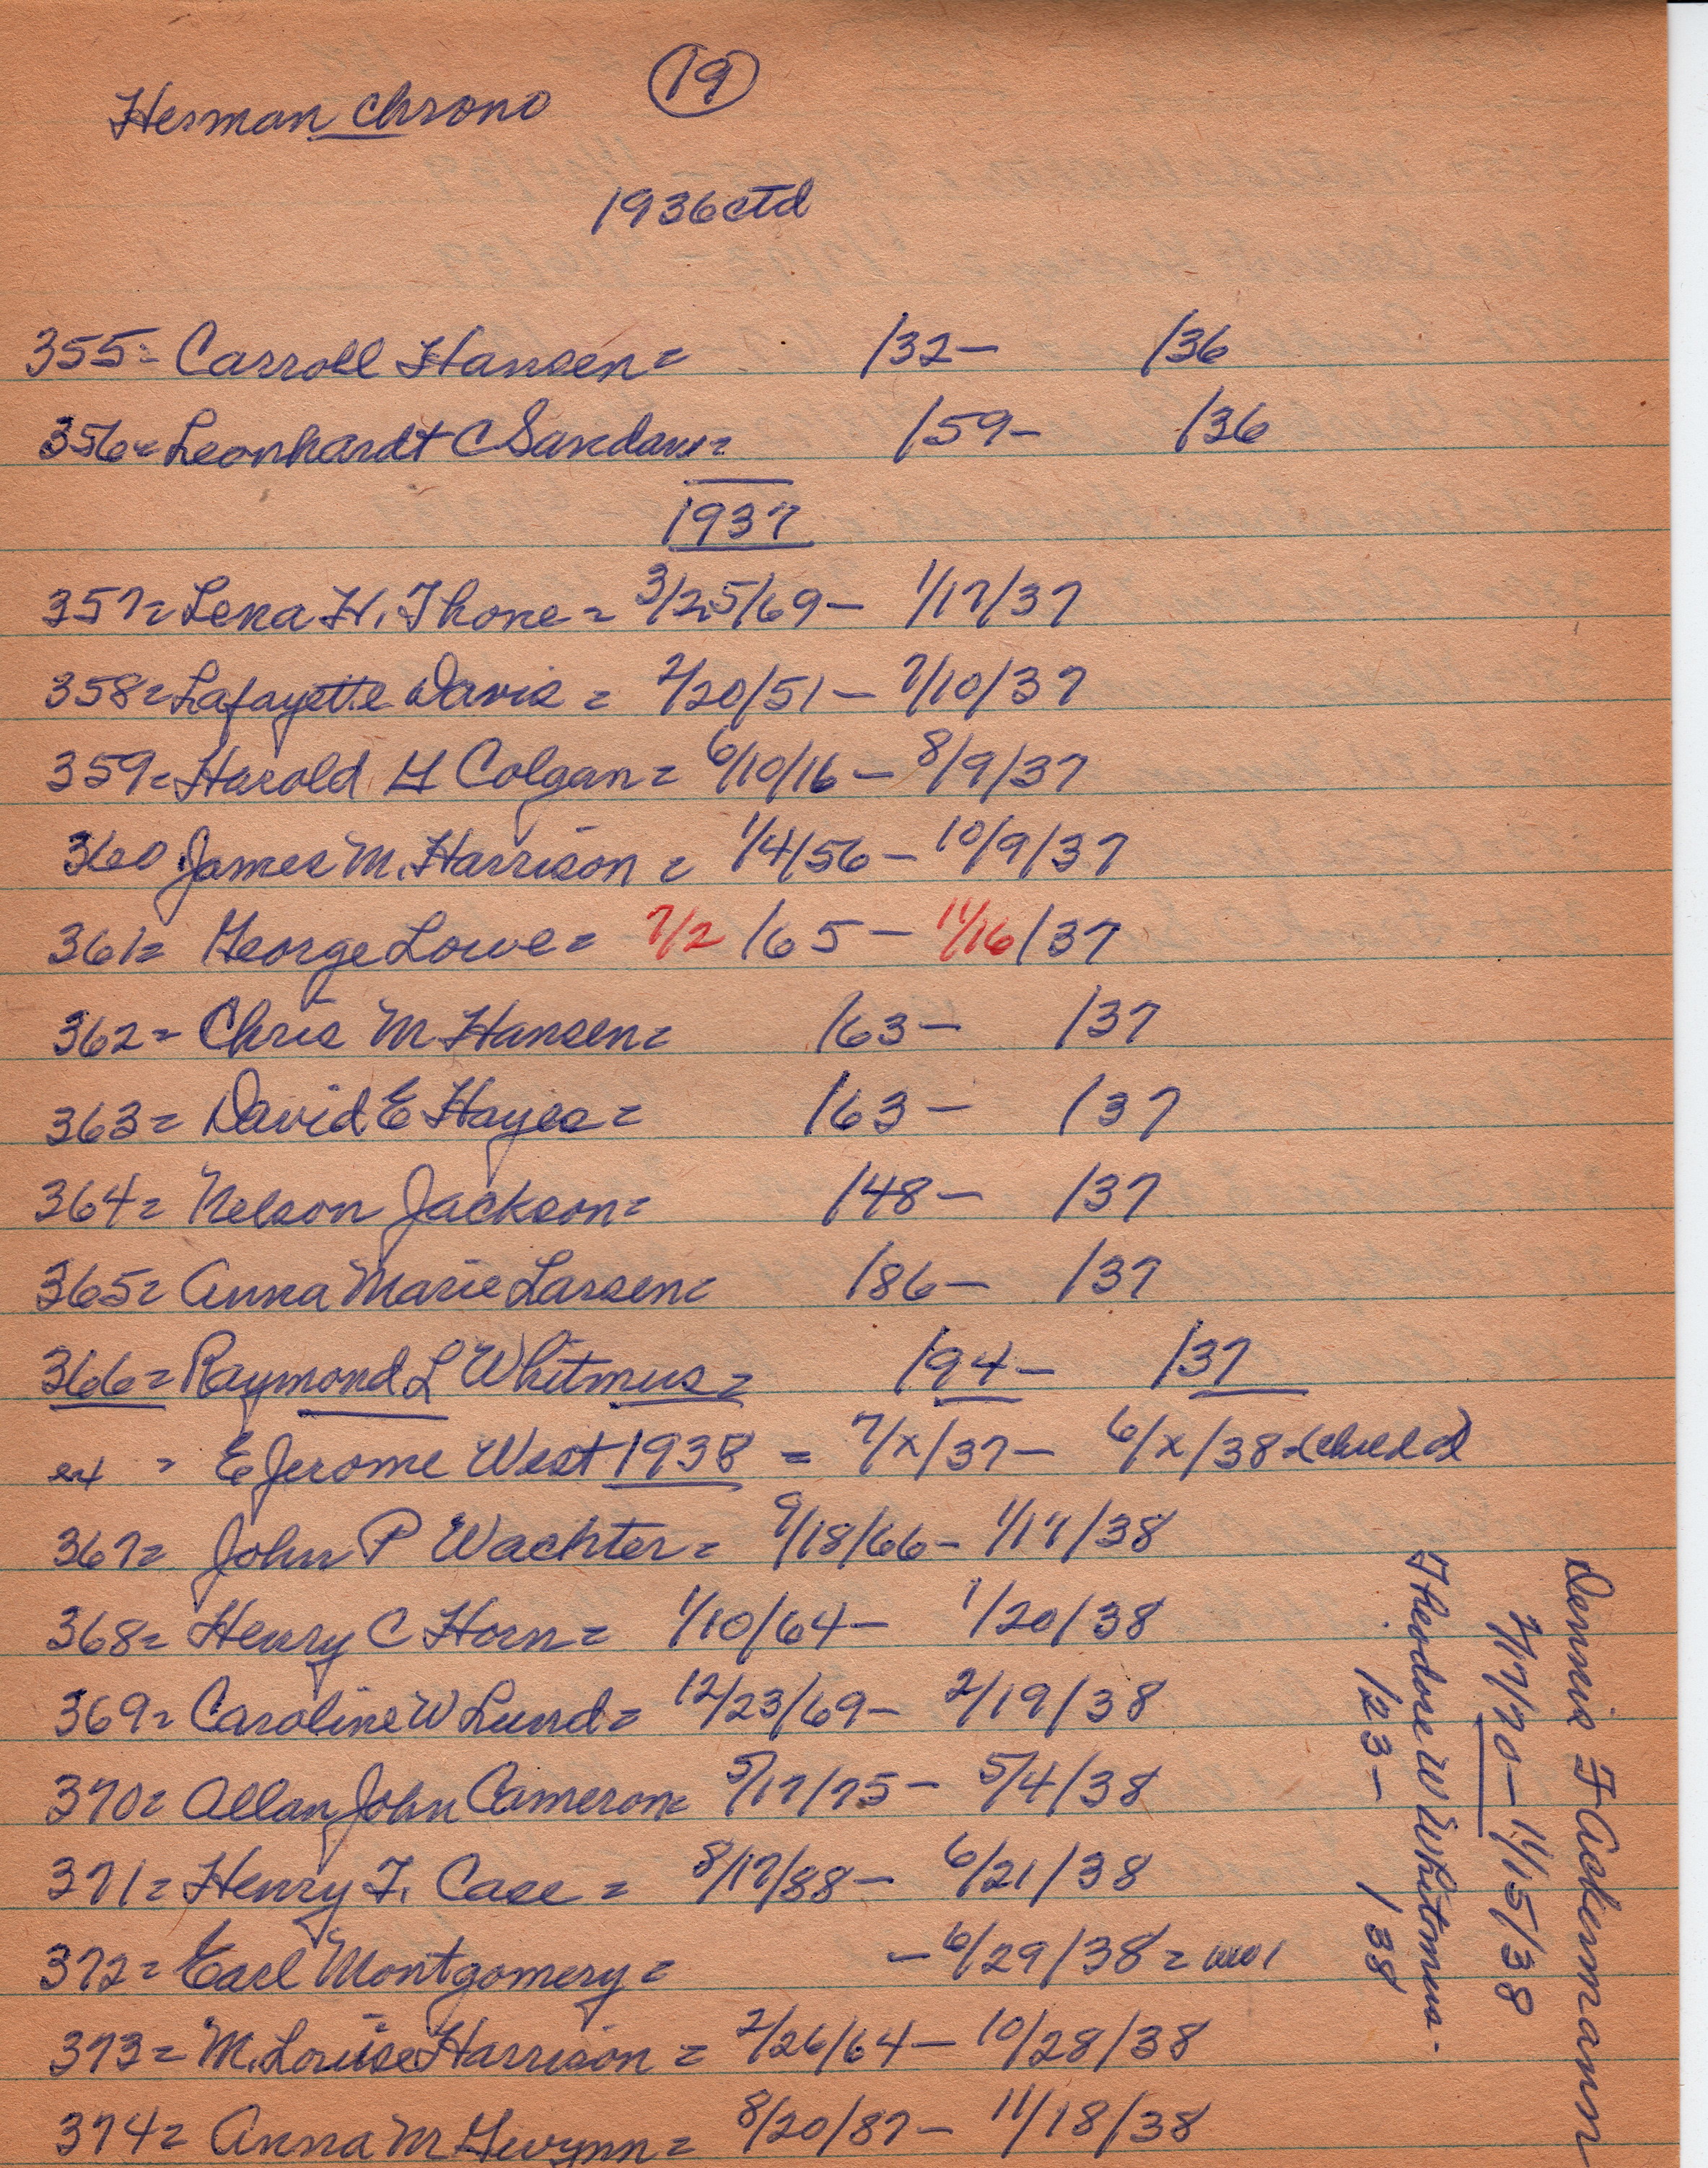 Herman chrono 19
1936 ctd
355= Carroll Hansen= /32- /36
356= Leonhardt C /59- /36
1937
357= Lena H. Thone= 3/25/69- 1/17/37
358= Lafayette Davis= 2/20/51- 7/10/37
359= Harold G Colgan= 6/10/16- 8/9/37
360 James M. Harrison= 1/4/56- 10/9/37
361= George Lowe= 7/2/65- 11/16/37
362= Chris M Hansen= /63- /37
363= David E Hayes= /63- /37
364= Nelson Jackson= /48- /37
365= Anna Marie Larsen= /86- /37
366= Raymond L Whitmus= /94- /37
ex = E Jerome West 1938 = 7/x/37- 6/x/38=(child)
367= John P Wachter= 9/18/66- 1/17/38
368= Henry C Horn= 1/10/64- 1/20/38
369= Caroline W Lund= 12/23/69- 2/19/38
370= Allan John Cameron= 5/17/75- 5/4/38
371= Henry F. Case= 8/17/88- 6/21/38
372= Earl Montgomery= -6/29/38= WW1
373= M. Louise Harrison= 2/26/64- 10/28/38
374= Anna M Gwynn= 8/20/87- 11/18/38
Dennis F Ackermann
7/17/70- 11/15/38
Theodore W Whitmus-
/23- /38